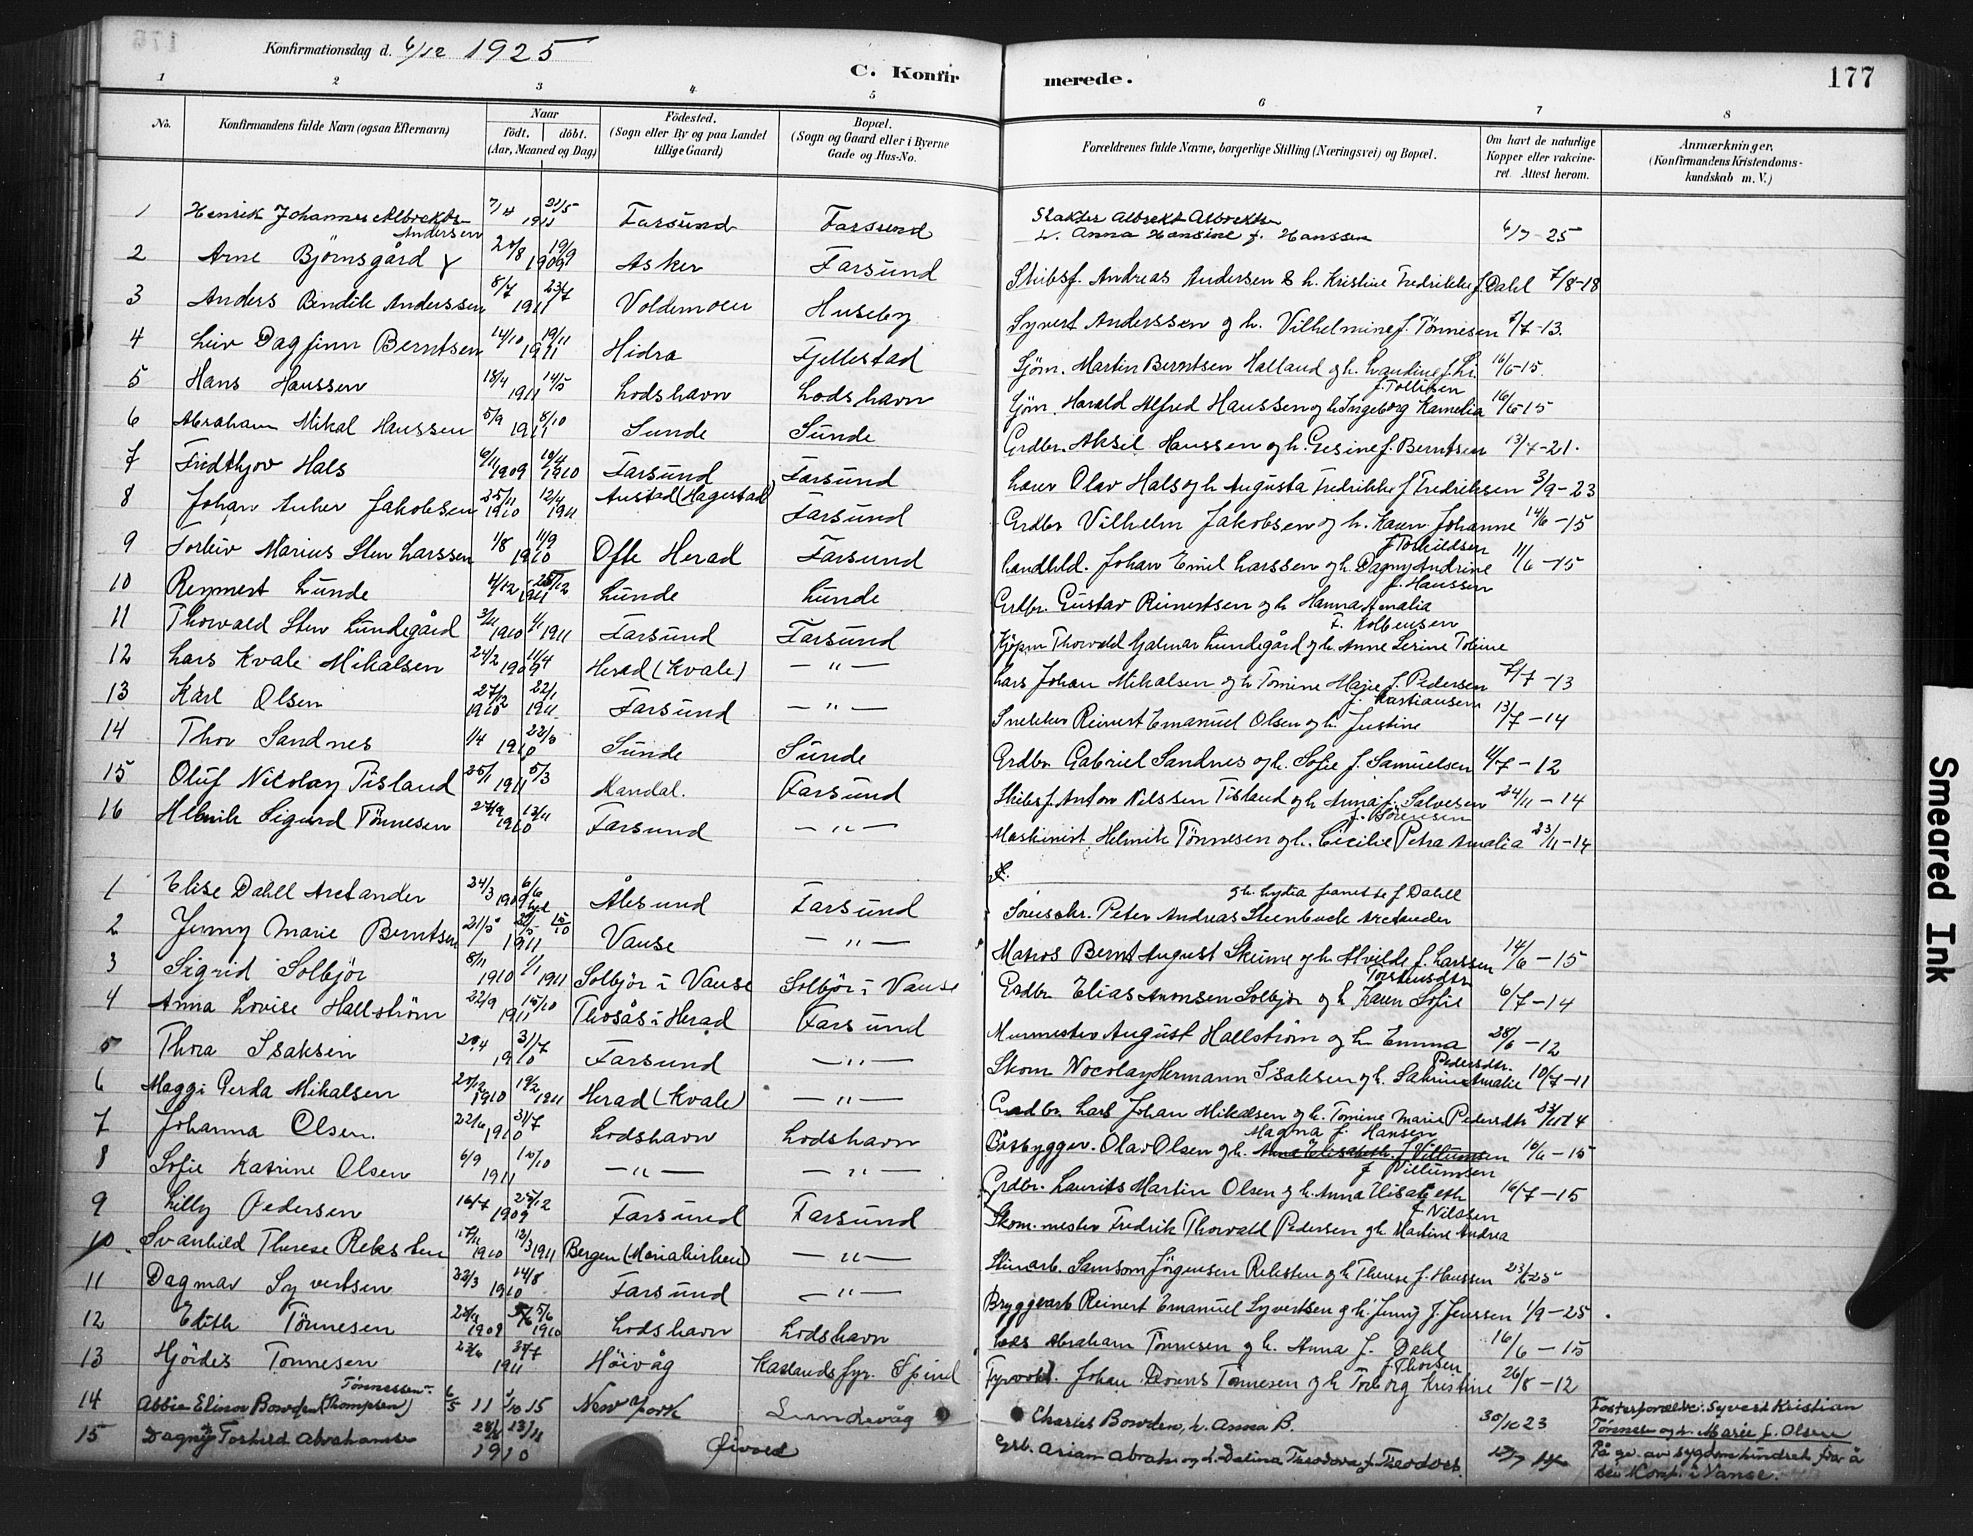 Konfirmationsdag d. 6/12 1925
C. Konfirmerede.
177
1 2 3 4 5 6 7 8
No. Konfirmandens fulde Navn (ogsaa Efternavn) Naar födt. döbt. (Aar, Maaned og Dag) Födested. (Sogn eller By og paa Landet tillige Gaard) Bopæl. (Sogn og Gaard eller i Byerne Gade og Hus-No. Forældrenes fulde Navne, borgerlige Stilling (Næringsvei) og Bopæl. Om havt de naturlige Kopper eller vakcineret. Attest herom. Anmærkninger. (Konfirmandens Kristendomskundskab m. V.)
1 Henrik Johannes Albrekts Andersen 7/4 21/5 1911 Farsund Farsund Slakter Albrekt Albrektsen h. Anna Hansine f. Hanssen 6/7-25
2 Arne Björnsgård 20/8 19/9 1909 Asker Farsund Skibsf. Andreas Andersen & h. Kristine Fredrikke f. Dahl 7/8-18
3 Anders Bendik Anderssen 8/7 23/7 1911 Voldemoen Huseby Syvert Anderssen og h. Vilhelmine f. Tönnesen /7-13.
4 Leiv Dagfinn Berntsen 14/10 19/11 1911 Hidra Fjellestad Sjöm. Martin Berntsen Halland og h. 16/6-15.
5 Hans Hanssen 18/4 14/5 1911 Lodshavn Lodshavn Sjöm. Harald Alfred Hanssen og h. Ingeborg Kamelia f. Tollisen 16/6-15
6 Abraham Mikal Hanssen 5/9 8/10 1911 Sunde Sunde Grdbr. Aksel Hanssen og h. Gesine f. Berntsen 13/7-21.
7 Fridthjov Hals 6/11 1909 10/4 1910 Farsund Farsund Lærer Olav Hals og h. Augusta Fredrikke f. Fredriksen 3/9-23
8 Johan Anker Jakobsen 25/11 1910 12/4 1911 Austad (Hagestad) Farsund Grdbr Vilhelm Jakobsen og h. Karen Johanne f. Torkildsen 14/6-15
9 Torleiv Marius Sten Larssen 1/8 11/9 1910 Ofte Herad Farsund Landhdl. Johan Emil Larssen og h. Dagny Andrine f. Hanssen 11/6-15
10 Reymert Lunde 4/12 25/12 1911 Lunde Lunde Grdbr. Gustav Reinertsen og h. Hanna Amalia f. Kolbensen
11 Thorvald Sten Lundegård 3/11 1910 1/1 1911 Farsund Farsund Kjöpm Thorvald Hjalmar Lundegård og h. Anne Serine Toline
12 Lars Kvale Mikalsen 24/2 11/4 1909 Herad (Kvale) — " — Lars Johan Mikalsen og h. Tomine Marie f. Pedersen 7/7-13
13 Karl Olsen 27/12 1910 22/1 1911 Farsund — " — Snekker Reinert Emanuel Olsen og h. Justine f. Kristiansen 13/7-14
14 Thor Sandnes 1/4 22/5 1910 Sunde Sunde Grdbr Gabriel Sandnes og h. Sofie f. Samuelsen 4/7-12
15 Oluf Nicolay Tisland 25/1 5/3 1911 Mandal. Farsund Skibsf. Anton Nilssen Tisland og h. Anna f. Salvesen 24/11-14
16 Helmik Sigurd Tönnesen 27/9 13/11 1910 Farsund — " — Maskinist Helmik Tönnesen og h. Cecilie Petra Amalia f. Sörensen 23/11-14
1 Elise Dahll Arctander 24/3 6/6 1909 Ålesund Farsund Sorenskr. Peter Andreas Steenbuck Arctander og h. Lydia Jeanette f Dahll
2 Jenny Marie Berntsen 21/5 1911 Vanse — " — Matros Bernt August Skeime og h. Alvilde f. Larssen 14/6-15
3 Sigrid Solbjör 8/11 1910 1/1 1911 Solbjör i Vanse Solbjör i Vanse Grdbr Elias Aronsen Solbjör og h Karen Sofie Torstensdtr 6/7-14
4 Anna Lovise Hallström 22/9 15/10 1911 Thosås i Herad Farsund Murmester August Hallström og h. Emma 28/6-12
5 Thora Isaksen 20/4 31/7 1910 Farsund — " — Skom Nocolay Hermann Isaksen og h. Sabrine Amalie Pedersdtr. 10/7-11
6 Maggi Gerda Mikalsen 1910 19/2 1911 Herad (Kvale) — " — Gradbr. Lars Johan Mikalsen og h. Tomine Marie Pedersdtr 23/10 14
7 Johanna Olsen. 22/6 31/7 1910 Lodshavn Lodshavn Båtbygger. Olav Olsen og h. Anna Elisabeth f. Villumsen Magna f. Hansen 16/6-15
8 Sofie Katrine Olsen 6/9 15/10 1911 — " — — " — Grdbr. Laurits Martin Olsen og h. Anna Elisabeth f Villumsen 16/7-15
9 Lilly Pedersen 16/7 25/12 1909 Farsund Farsund Skom.mester Fredrik Thorvald Pedersen og h. Martine Andrea f. Nilssen
10 Svanhild Therese Reksten 17/11 1910 12/3 1911 Bergen (Mariakirken) — " — Stenarb. Samson Jörgensen Reksten og h Therese f. Hanssen 23/6 25
11 Dagmar Syvertsen 22/3 14/8 1910 Farsund — " — Bryggearb Reinert Emanuel Syvertsen og h. Jenny f. Jenssen 1/9-25
12 Edith Tönnesen 1909 5/6 1910 Lodshavn Lodshavn Lods Abraham Tönnesen og h. Anna f. Dahl 16/6-15
13 Hjördis Tonnesen 23/6 1911 Höivåg Katlands fyr. Spind Fyrvokt. Johan Tönnesen og h Torborg Kristine f. Thorsen 26/8-12
14 Abbie Elinor Bowden (Thompsen) Tönnessen. 6/5 11 /10 15 New York Lundevåg Charles Bowden, h. Anna B. 30/10 23 Fosterforældre: Syvert Kristian Tönnesen og h. Marie f. Olsen
15 Dagny Torhild Abrahamsen 28/ 13/11 1910 Öivold Grb. Arian Abrah og h. Dalina Theodora f. Theodors. På gr. av sygdom hindret for å bli Konf. i Vanse.
Smeared Ink